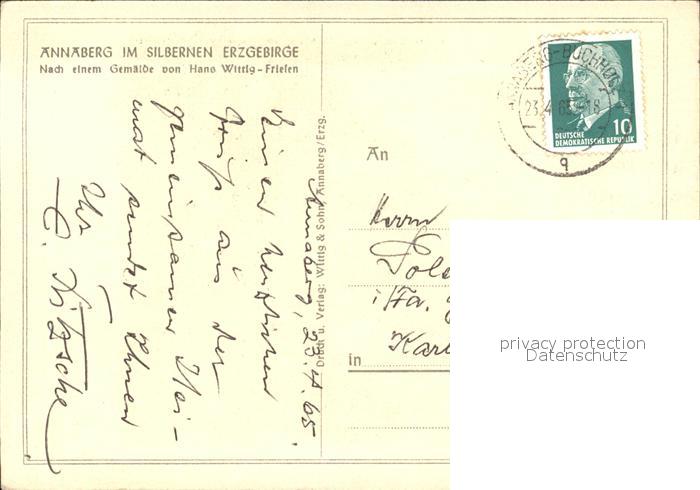 ANNABERG IM SILBERNEN ERZGEBIRGE
Nach einem Gemälde von Hans Wittig-Friesen
Annaberg, 23.4.65.
Einen herzlichen
Gruß aus der
gemeinsamen Hei-
mat sendet Ihnen
Ihr
Druck u. Verlag: Wittig & Sohn, Annaberg/Erzg.
ANNABERG-BUCHHOLZ
23.4.65-18
q
10
DEUTSCHE
DEMOKRATISCHE REPUBLIK
An
Herrn
i/Fa.
in
privacy protection
Datenschutz